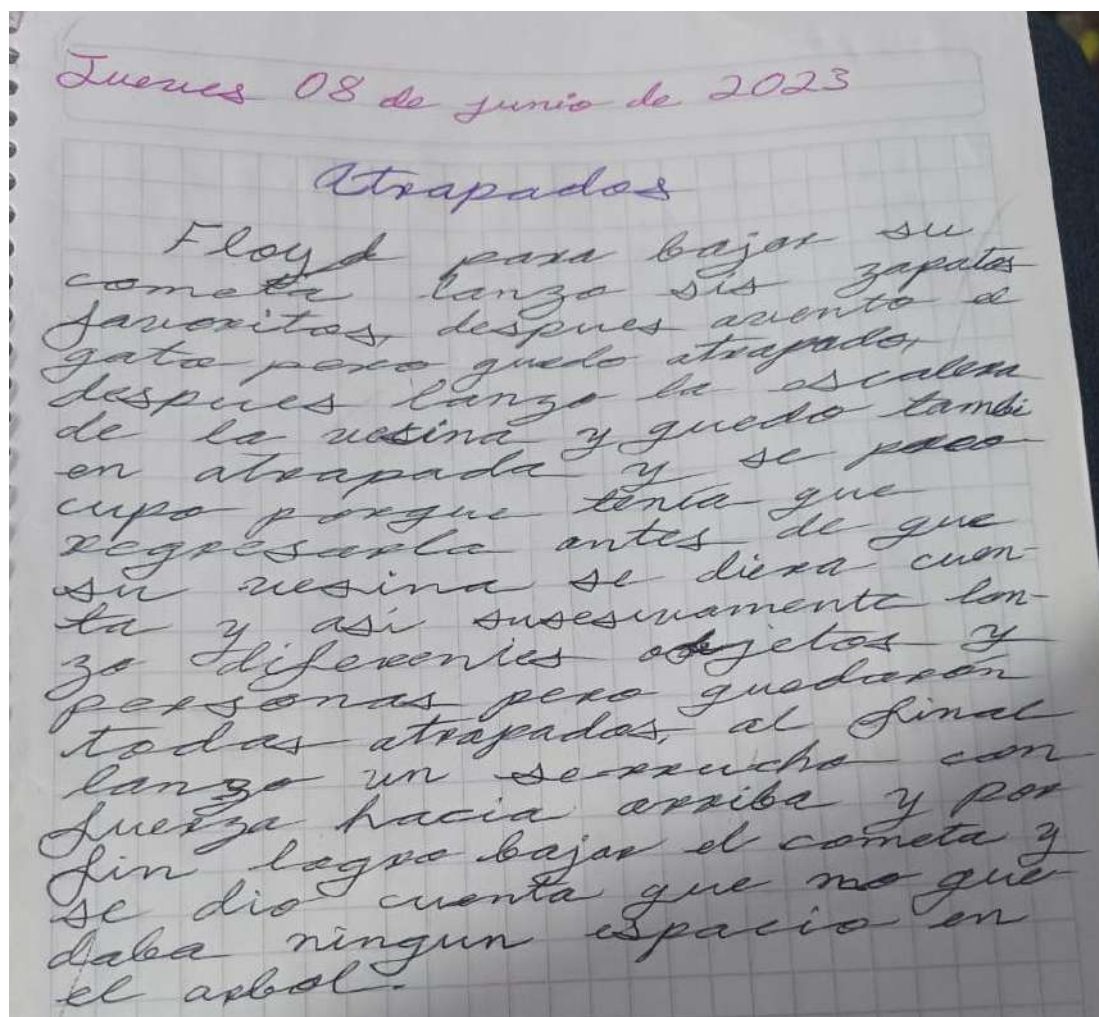 Jueves 08 de junio de 2023
Atrapados
Floyd para bajar su
cometa lanzo sis zapatos
favoritos, despues avento el
gato pero quedo atrapado,
despues lanzo la escalera
de la vesina y quedo tambi
en atrapada y se preo
cupo porque tenia que
regresarla antes de que
su vesina se diera cuen-
ta y asi susesivamente lan-
zo diferentes objetos y
personas pero quedarón
todas atrapados, al final
lanzo un serrucho con
fuerza hacia arriba y por
fin logro bajar el cometa y
se dio cuenta que no que
daba ningun espacio en
el arbol.